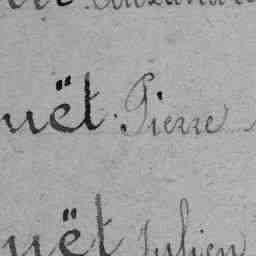 uët. Pierre
uët Julien